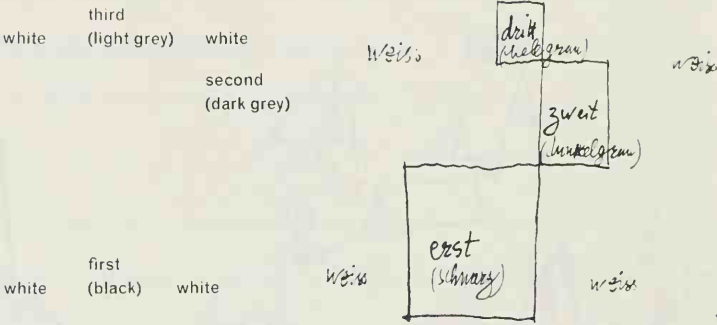 third
white (light grey) white
second
(dark grey)
first
white (black) white
dritt
weiss (hellgrau) weiss
zweit
(dunkelgrau)
erst
weiss (schwarz) weiss